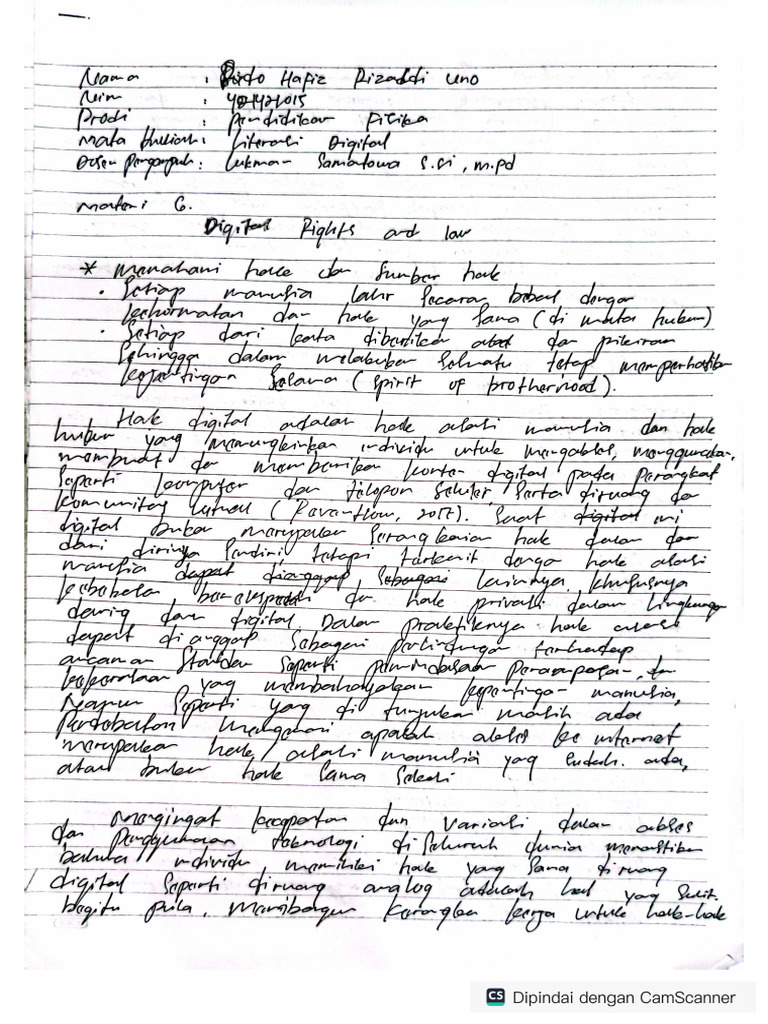 Nama : Rirto Hafiz Rizaldi Uno
Nim : 421421015
Prodi : Pendidikan Fisika
Mata Kuliah : Literasi Digital
Dosen Pengampuh : Lukman Samatowa S.Si, M.Pd
Materi 6.
Digital Rights and law
* Memahami hak dan Sumber hak
• Setiap manusia lahir secara bebas dengan
kehormatan dan hak yang sama (di mata hukum)
• Setiap dari kata diberikan akal dan pikiran
Sehingga dalam melakukan sesuatu tetap memperhatikan
kepentingan Selama (spirit of brotherhood).
Hak digital adalah hak asasi manusia dan hak
hukum yang memungkinkan individu untuk mengakses, menggunakan,
membuat dan memberikan konten digital pada Perangkat
Seperti komputer dan telepon seluler, Serta diruang dan
komunitas virtual ( , 2017). Saat digital ini
digital bukan merupakan serangkaian hak dalam dan
dari dirinya Sendiri, tetapi terkait dengan hak asasi
manusia dapat dianggap sebagai lainnya. khususnya
kebebasan berekspresi dan hak privasi dalam lingkungan
daring dan digital. Dalam praktiknya hak asasi
dapat di anggap Sebagai perlindungan terhadap
ancaman Standar Seperti pemindasan Perampasan, dan
kekerasan yang membahayakan kepentingan manusia,
Namun Seperti yang di tunjukan masih ada
Perdebatan mengenai apakah akses ke internet
merupakan hak asasi manusia yang sudah ada,
atau bukan hak sama Sekali
Mengingat kecepatan dan variasi dalam akses
dan Penggunaan teknologi di Seluruh dunia memastikan
bahwa individu memiliki hak yang sama diruang
digital Seperti diruang analog adalah hal yang Sulit.
begitu pula, membangun kerangka kerja untuk hak-hak
CS Dipindai dengan CamScanner